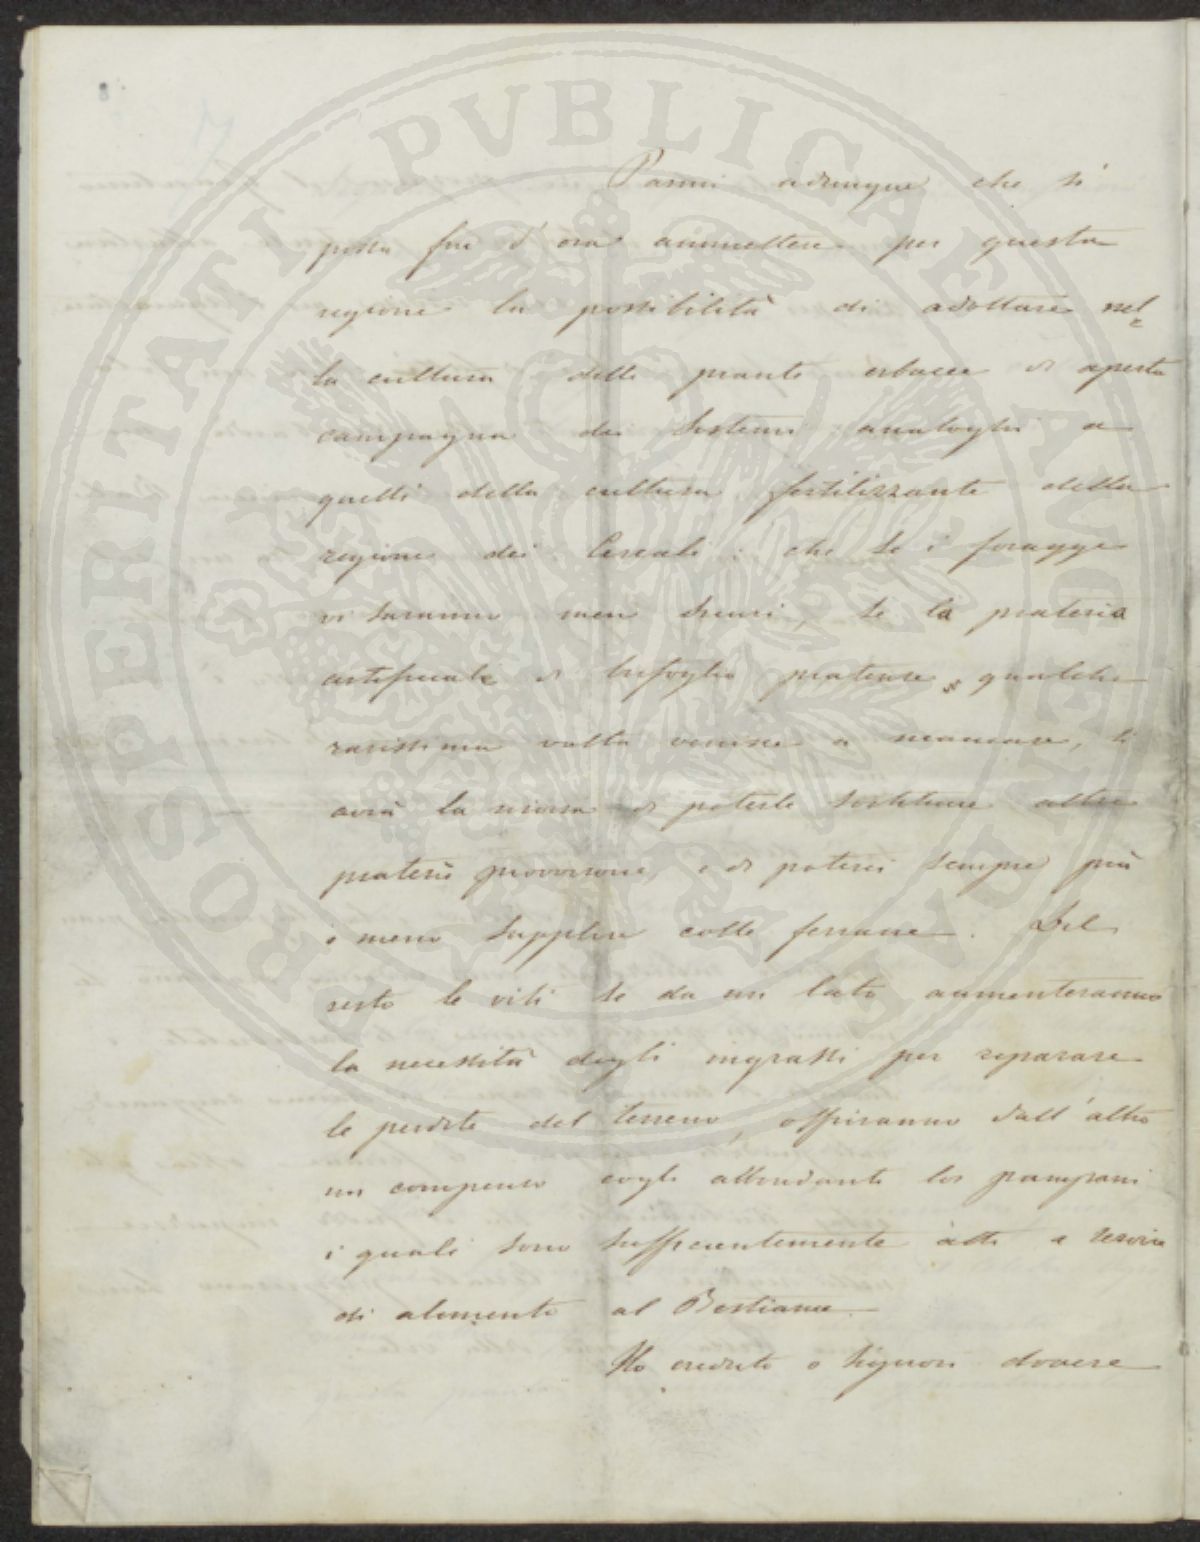 PROSPERITATI PVBLICAE AVGENDAE
Parmi adunque che si
possa fin d'ora ammettere per questa
regione la possibilità di adottare nel
la cultura delle piante erbacee di aperta
campagna dei sistemi analoghi a
quelli della cultura fertilizzante della
regione dei Cereali: che se i foraggi
vi saranno men sicuri, se la prateria
artificiale di trifoglio pratense qualche
rarissima volta venisse a mancare, si
avrà la risorsa di poterle sostituire altre
praterie provvisorie, e di poterci sempre più
o meno supplire colle ferrane. Del
resto le viti se da un lato aumenteranno
la necessità degli ingrassi per riparare
le perdite del terreno, offriranno dall'altro
un compenso cogli abbondanti lor pampani
i quali sono sufficientemente atti a servire
di alimento al Bestiame.
Ho creduto o Signori dovere